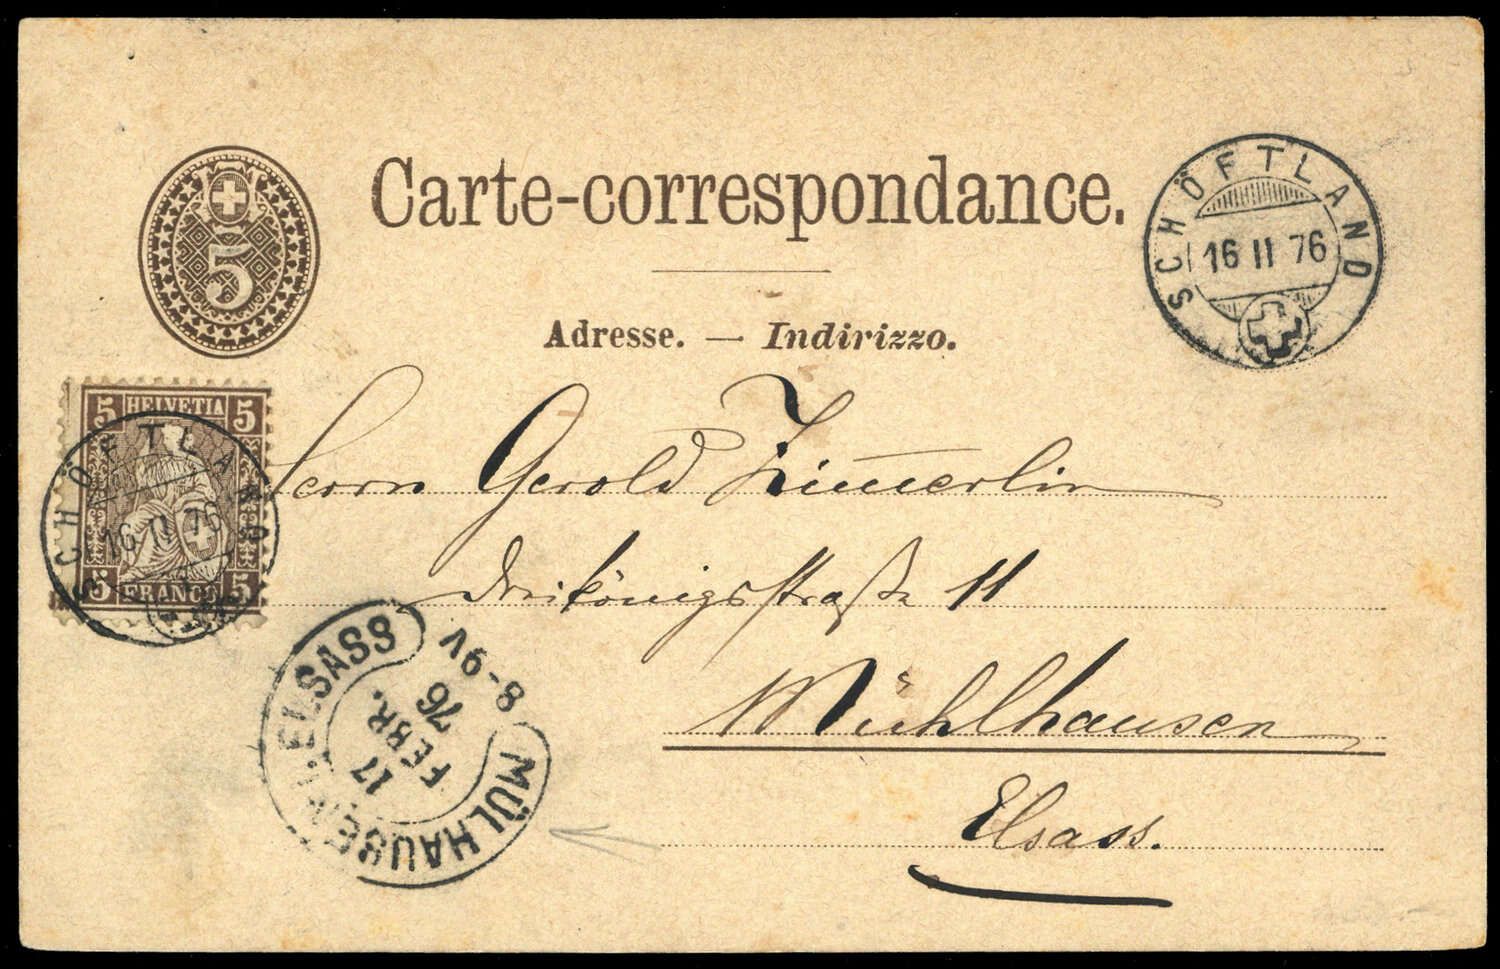 Carte-correspondance.
5
Adresse. — Indirizzo.
SCHÖFTLAND
16 II 76
5 HELVETIA 5
5 FRANCO 5
SCHÖFTLAND
16 II 76
Herrn Gerold Zimmerlin
Dreikönigsstraße 11
Mühlhausen
Elsass.
MÜLHAUSEN I. ELSASS
17
FEBR.
76
8-9V